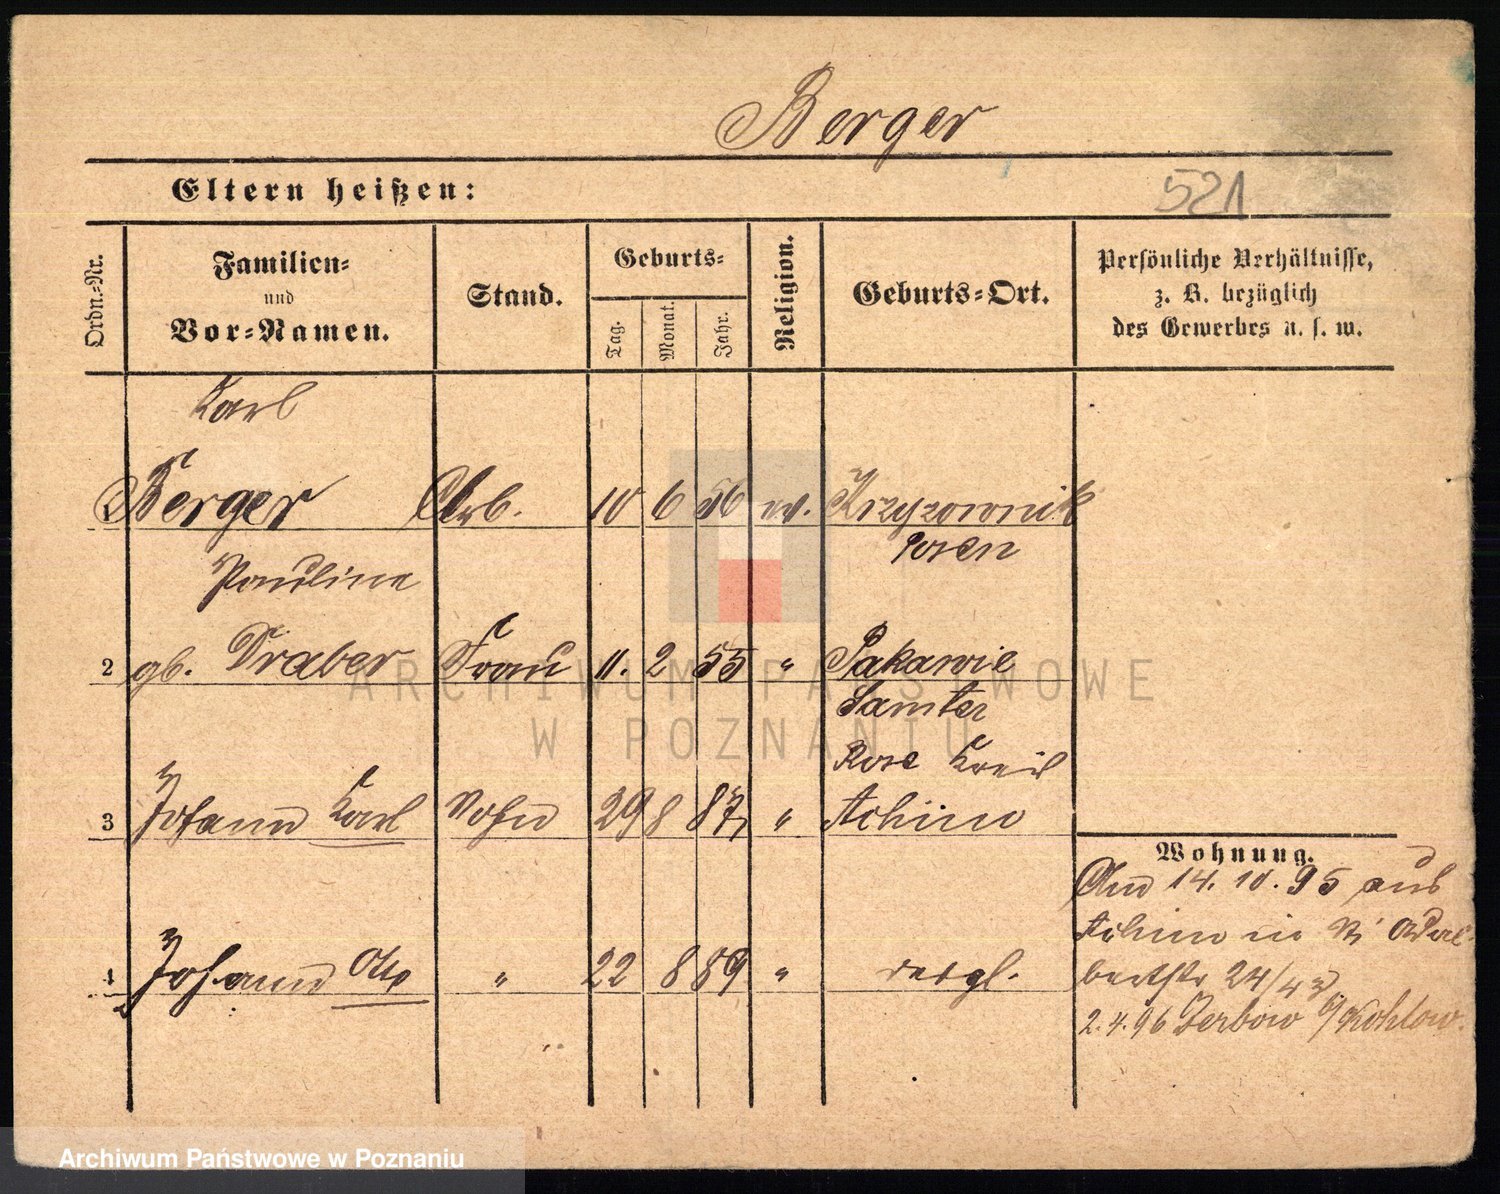 Berger
Eltern heißen:
521
Ordn.-Nr.
Familien-
und
Vor-Namen.
Stand.
Geburts-
Tag.
Monat.
Jahr.
Religion.
Geburts-Ort.
Persönliche Verhältnisse,
z. B. bezüglich
des Gewerbes u. s. w.
Karl
1 Berger Arb. 10 6 56 ev. Krzyzownik
Posen
Pauline
2 gb. Draber Frau 11. 2 55 " Pakawie
Samter
Kreis
3 Johann Karl Sohn 29 8 87 " Achim
Wohnung.
Am 14. 10. 95 aus
Achim in Adal-
4 Johann Otto " 22 8 89 " desgl.
bertstr 24/43
2. 4. 96 Zerbow b/Kohlow.
ARCHIWUM PAŃSTWOWE
W POZNANIU
Archiwum Państwowe w Poznaniu